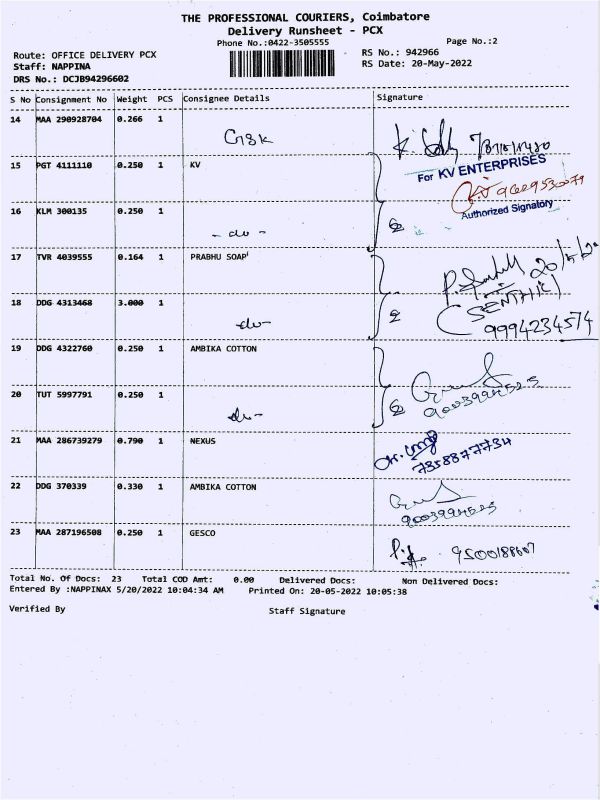 THE PROFESSIONAL COURIERS, Coimbatore
Delivery Runsheet - PCX
Phone No.:0422-3505555
Page No.:2
Route: OFFICE DELIVERY PCX
RS No.: 942966
Staff: NAPPINA
RS Date: 20-May-2022
DRS No.: DCJB94296602
S No Consignment No Weight PCS Consignee Details Signature
14 MAA 290928704 0.266 1
15 PGT 4111110 0.250 1 KV
For KV ENTERPRISES
9629530079
Authorized Signatory
16 KLM 300135 0.250 1
- do -
17 TVR 4039555 0.164 1 PRABHU SOAP
18 DDG 4313468 3.000 1
-do-
(SENTHIL)
9994234574
19 DDG 4322760 0.250 1 AMBIKA COTTON
20 TUT 5997791 0.250 1
-do-
9003994525
21 MAA 286739279 0.790 1 NEXUS
7358877734
22 DDG 370339 0.330 1 AMBIKA COTTON
9003994525
23 MAA 287196508 0.250 1 GESCO
9500188607
Total No. Of Docs: 23 Total COD Amt: 0.00 Delivered Docs: Non Delivered Docs:
Entered By :NAPPINAX 5/20/2022 10:04:34 AM Printed On: 20-05-2022 10:05:38
Verified By Staff Signature